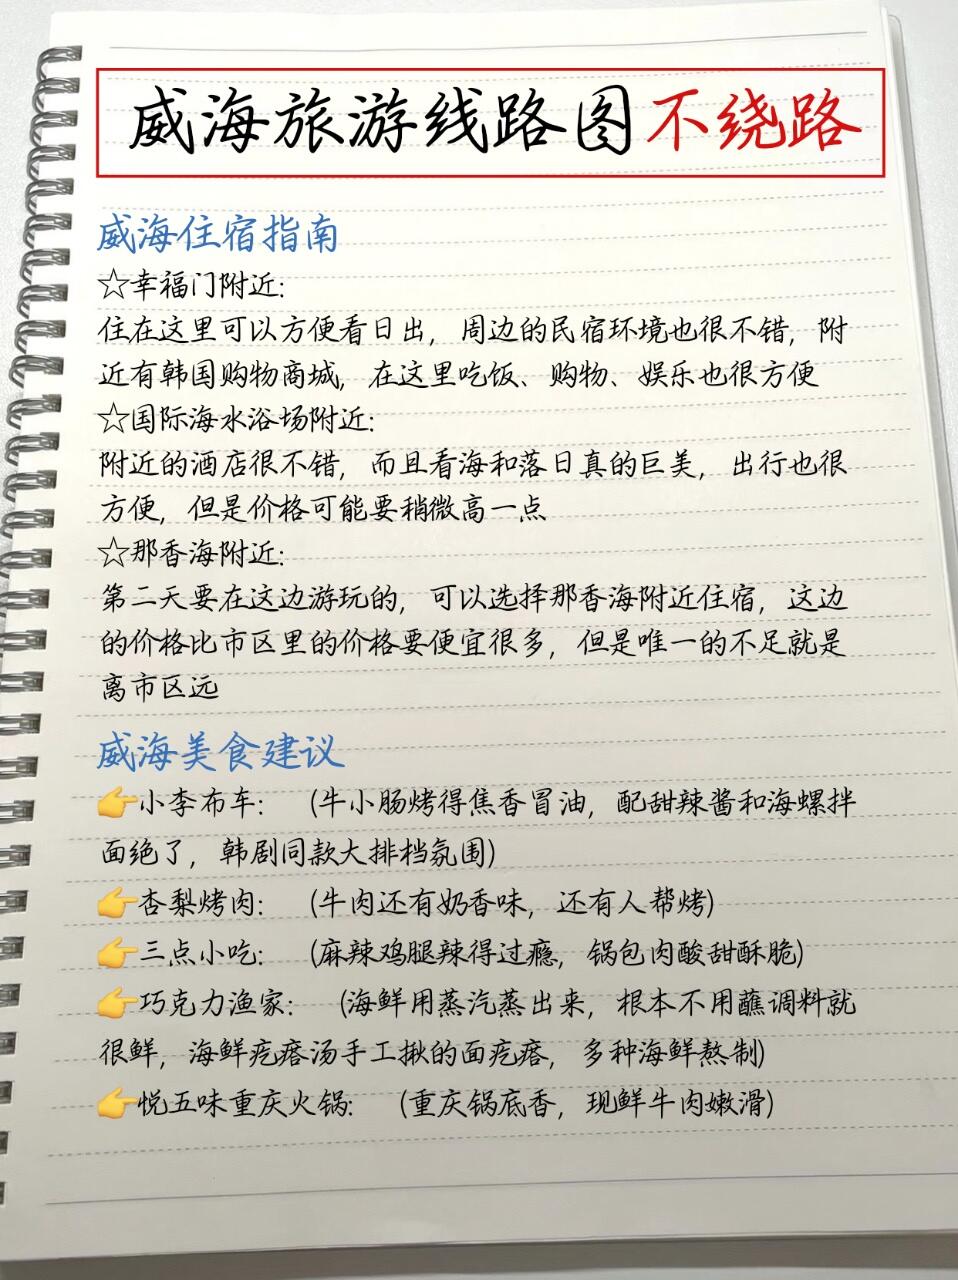 威海旅游线路图不绕路
威海住宿指南
☆幸福门附近:
住在这里可以方便看日出，周边的民宿环境也很不错，附
近有韩国购物商城，在这里吃饭、购物、娱乐也很方便
☆国际海水浴场附近:
附近的酒店很不错，而且看海和落日真的巨美，出行也很
方便，但是价格可能要稍微高一点
☆那香海附近:
第二天要在这边游玩的，可以选择那香海附近住宿，这边
的价格比市区里的价格要便宜很多，但是唯一的不足就是
离市区远
威海美食建议
👉小李布车: (牛小肠烤得焦香冒油，配甜辣酱和海螺拌
面绝了，韩剧同款大排档氛围)
👉杏梨烤肉: (牛肉还有奶香味，还有人帮烤)
👉三点小吃: (麻辣鸡腿辣得过瘾，锅包肉酸甜酥脆)
👉巧克力渔家: (海鲜用蒸汽蒸出来，根本不用蘸调料就
很鲜，海鲜疙瘩汤手工揪的面疙瘩，多种海鲜熬制)
👉悦五味重庆火锅: (重庆锅底香，现鲜牛肉嫩滑)